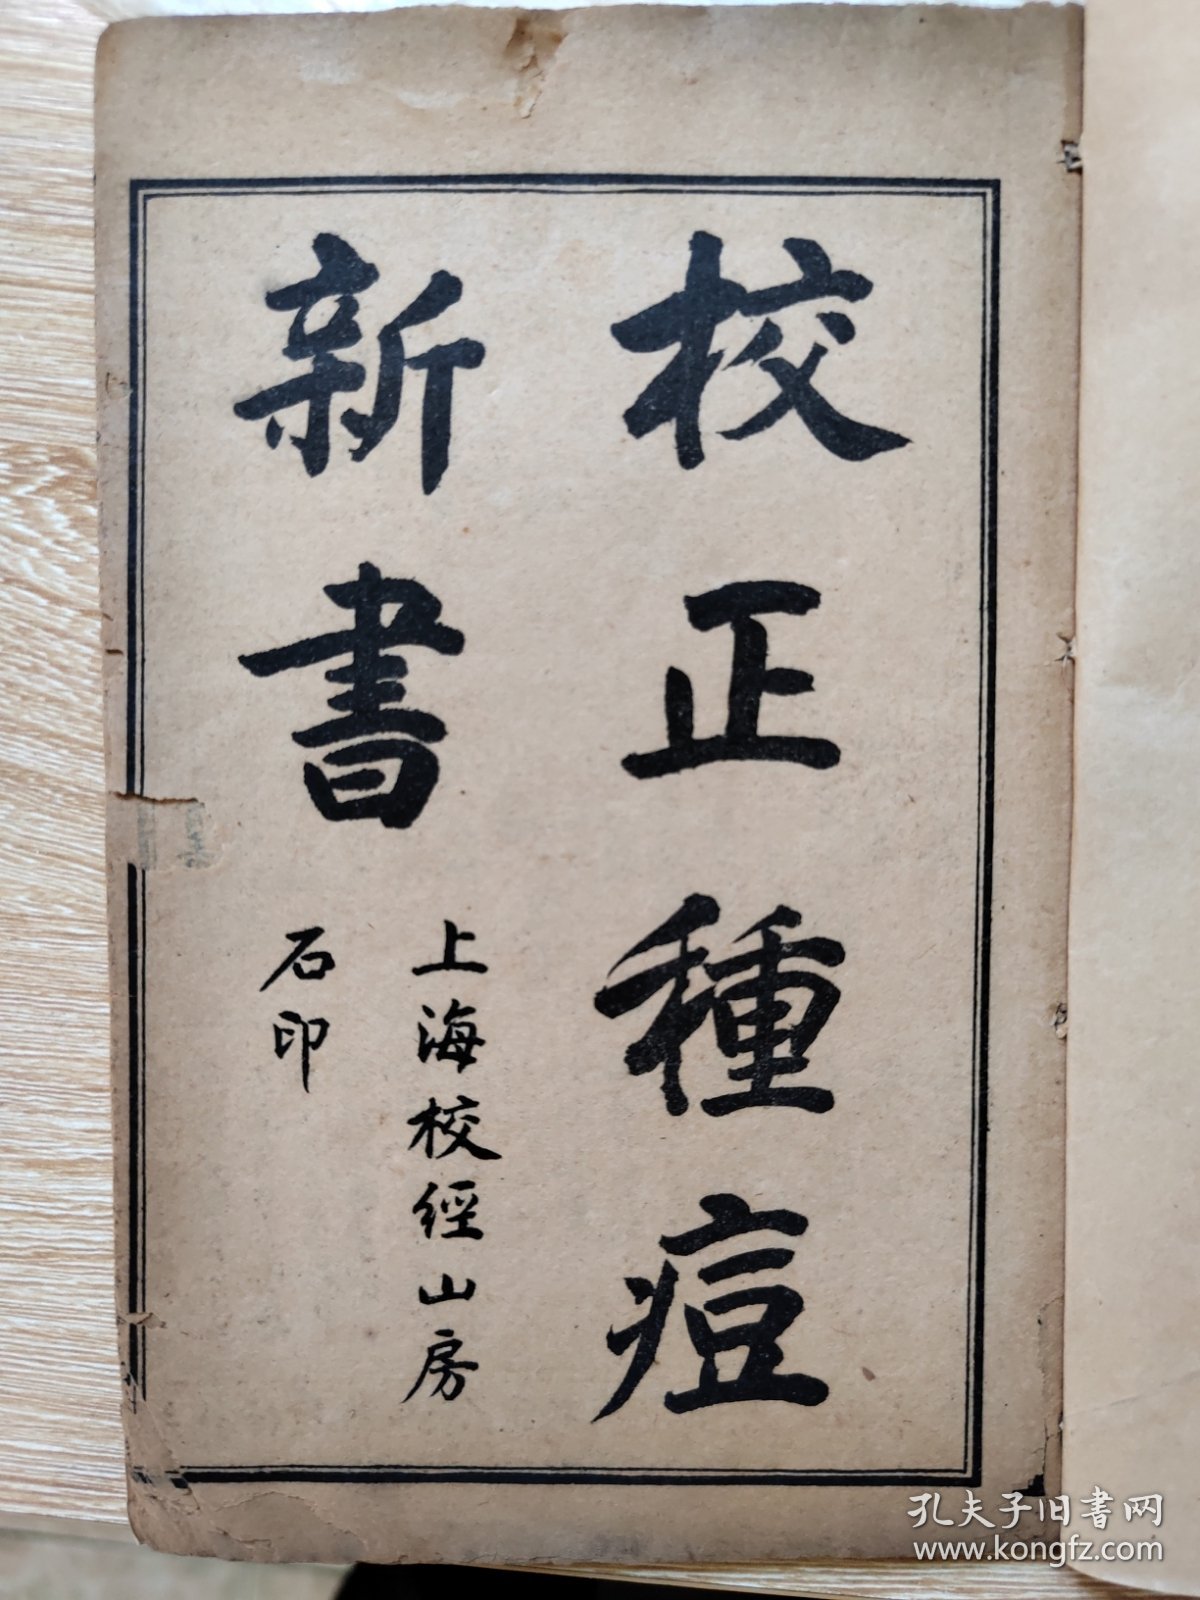 校正種痘
新書
上海校經山房
石印
孔夫子旧書网
www.kongfz.com